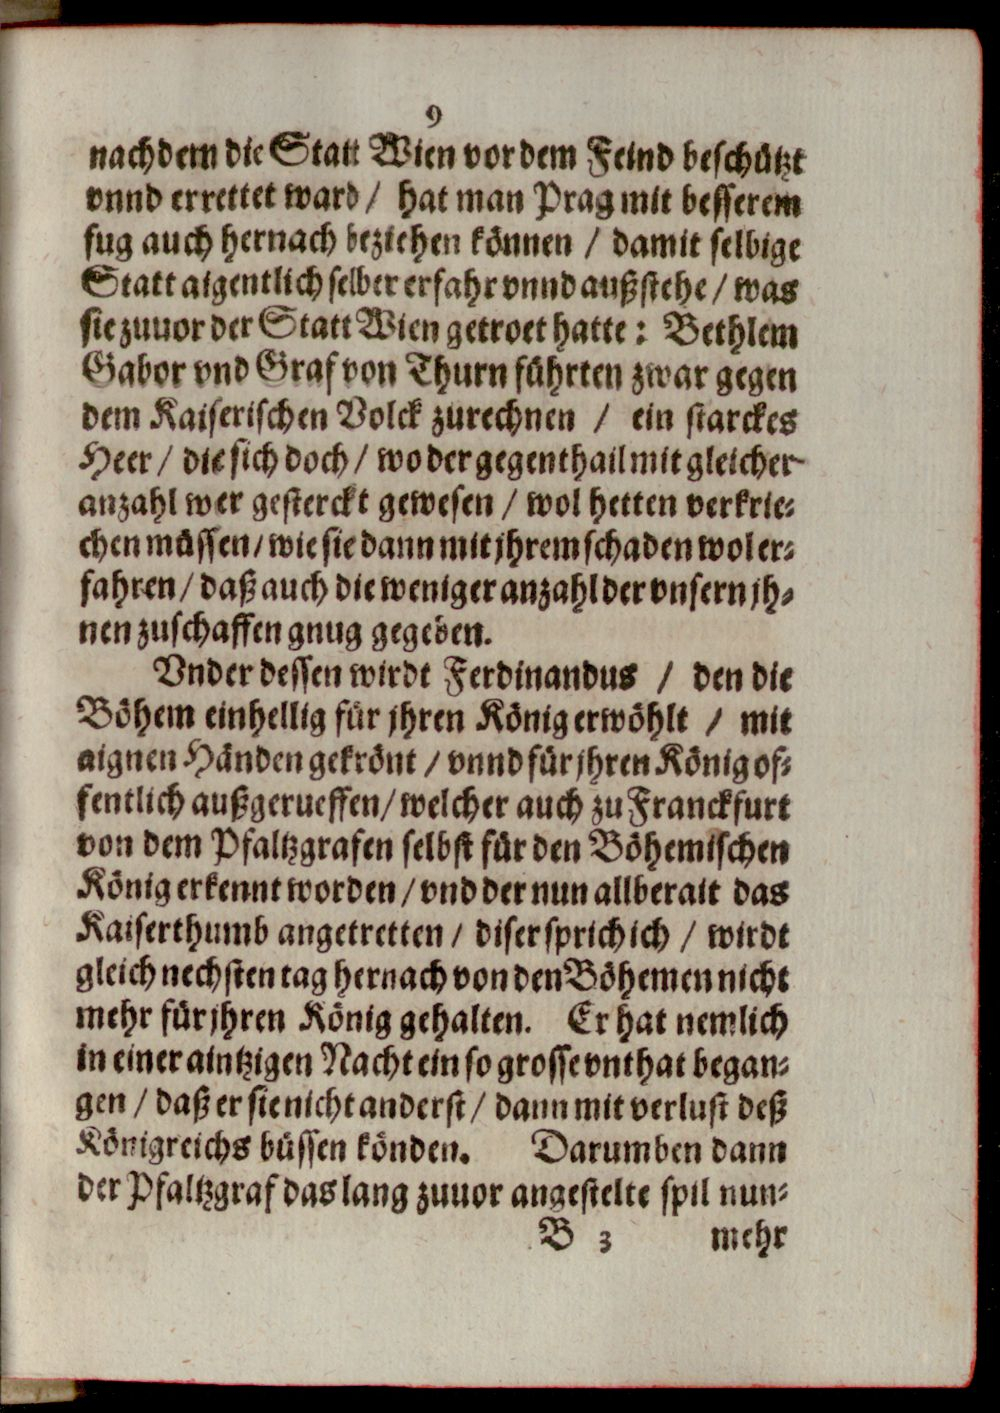 9
nachdem die Statt Wien vor dem Feind beschützt
vnnd errettet ward / hat man Prag mit besserem
fug auch hernach beziehen können / damit selbige
Statt aigentlich selber erfahr vnnd außstehe / was
sie zuuor der Statt Wien getroet hatte: Bethlem
Gabor vnd Graf von Thurn führten zwar gegen
dem Kaiserischen Volck zurechnen / ein starckes
Heer / die sich doch / wo der gegenthail mit gleicher
anzahl wer gesterckt gewesen / wol hetten verkrie-
chen müssen / wie sie dann mit jhrem schaden wol er-
fahren / daß auch die weniger anzahl der vnsern jh-
nen zuschaffen gnug gegeben.
Vnder dessen wirdt Ferdinandus / den die
Böhem einhellig für jhren König erwöhlt / mit
aignen Händen gekrönt / vnnd für jhren König of-
fentlich außgerueffen / welcher auch zu Franckfurt
von dem Pfaltzgrafen selbst für den Böhemischen
König erkennt worden / vnd der nun allberait das
Kaiserthumb angetretten / diser sprich ich / wirdt
gleich nechsten tag hernach von den Böhemen nicht
mehr für jhren König gehalten. Er hat nemlich
in einer aintzigen Nacht ein so grosse vnthat began-
gen / daß er sie nicht anderst / dann mit verlust deß
Königreichs büssen könden. Darumben dann
der Pfaltzgraf das lang zuuor angestelte spil nun-
B 3 mehr